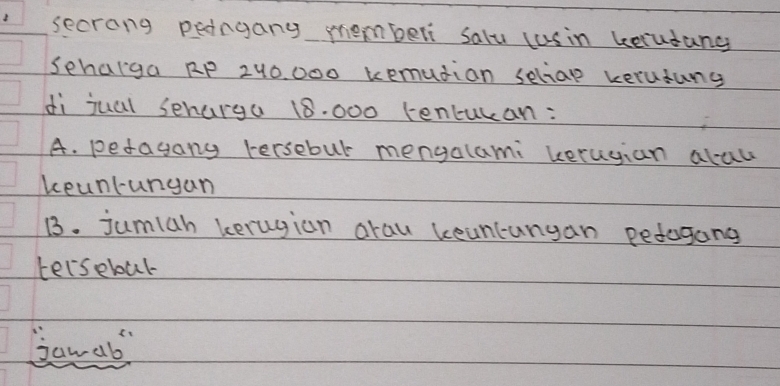 seorang pedagang memberi satu lusin kerudung
seharga RP 240.000 kemudian setiap kerudung
di jual seharga 18.000 tentukan :
A. pedagang tersebut mengalami kerugian atau
keuntungan
B. jumlah kerugian atau keuntungan pedagang
tersebut
"jawab"